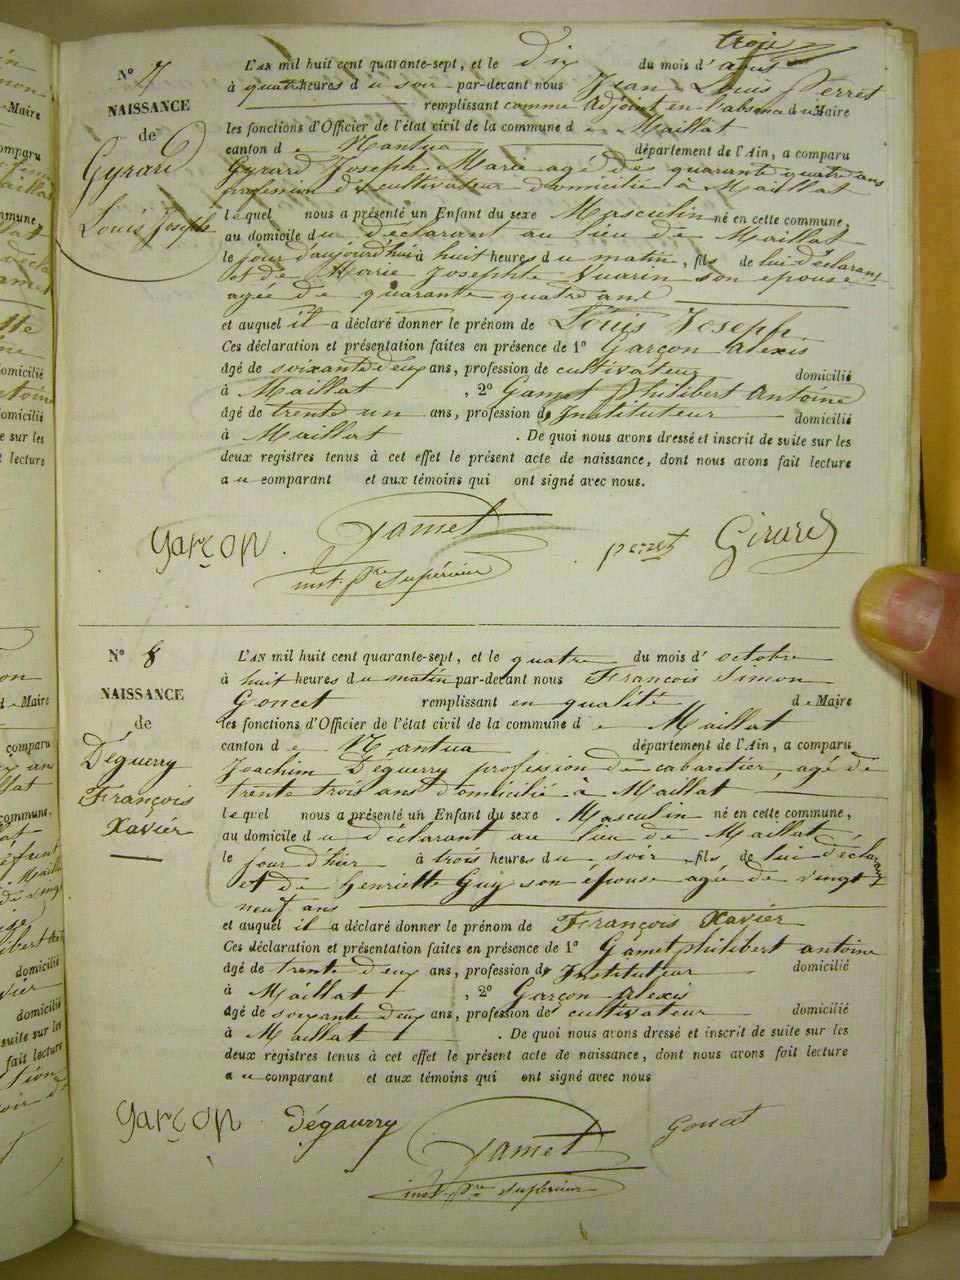 trois
N° 7
NAISSANCE
de
Gyrard
Louis Joseph
L'AN mil huit cent quarante-sept, et le dix du mois d' août
à quatre heures du soir par-devant nous Jean Louis Perret
remplissant comme Adjoint en l'absence du Maire
les fonctions d'Officier de l'état civil de la commune de Maillat
canton de Nantua département de l'Ain, a comparu
Gyrard Joseph Marie agé de quarante quatre ans
profession de cultivateur domicilié à Maillat
lequel nous a présenté un Enfant du sexe Masculin né en cette commune,
au domicile du déclarant au lieu de Maillat
le jour d'aujourd'hui à huit heures du matin, fils de lui déclarant
et de Marie Josephte Vuarin son épouse
agée de quarante quatre ans
et auquel il a déclaré donner le prénom de Louis Joseph
Ces déclaration et présentation faites en présence de 1° Garçon Alexis
âgé de soixante deux ans, profession de cultivateur domicilié
à Maillat, 2° Gamet Philibert Antoine
âgé de trente un ans, profession d'Instituteur domicilié
à Maillat. De quoi nous avons dressé et inscrit de suite sur les
deux registres tenus à cet effet le présent acte de naissance, dont nous avons fait lecture
au comparant et aux témoins qui ont signé avec nous.
garçon. Gamet perret Girard
inst. pre supérieur
N° 8
NAISSANCE
de
Déguerry
François
Xavier
L'AN mil huit cent quarante-sept, et le quatre du mois d' octobre
à huit heures du matin par-devant nous François Simon
Goncet remplissant en qualité de Maire
les fonctions d'Officier de l'état civil de la commune de Maillat
canton de Nantua département de l'Ain, a comparu
Joachim Déguerry profession de cabaretier, agé de
trente trois ans domicilié à Maillat
lequel nous a présenté un Enfant du sexe Masculin né en cette commune,
au domicile du déclarant au lieu de Maillat
le jour d'hier à trois heures du soir, fils de lui déclarant
et de henriette Guy son épouse agée de vingt
neuf ans
et auquel il a déclaré donner le prénom de François Xavier
Ces déclaration et présentation faites en présence de 1° Gamet philibert antoine
âgé de trente deux ans, profession d'Instituteur domicilié
à Maillat, 2° Garçon Alexis
âgé de soixante deux ans, profession de cultivateur domicilié
à Maillat. De quoi nous avons dressé et inscrit de suite sur les
deux registres tenus à cet effet le présent acte de naissance, dont nous avons fait lecture
au comparant et aux témoins qui ont signé avec nous
garçon Dégaurry Gamet
inst. pre supérieur